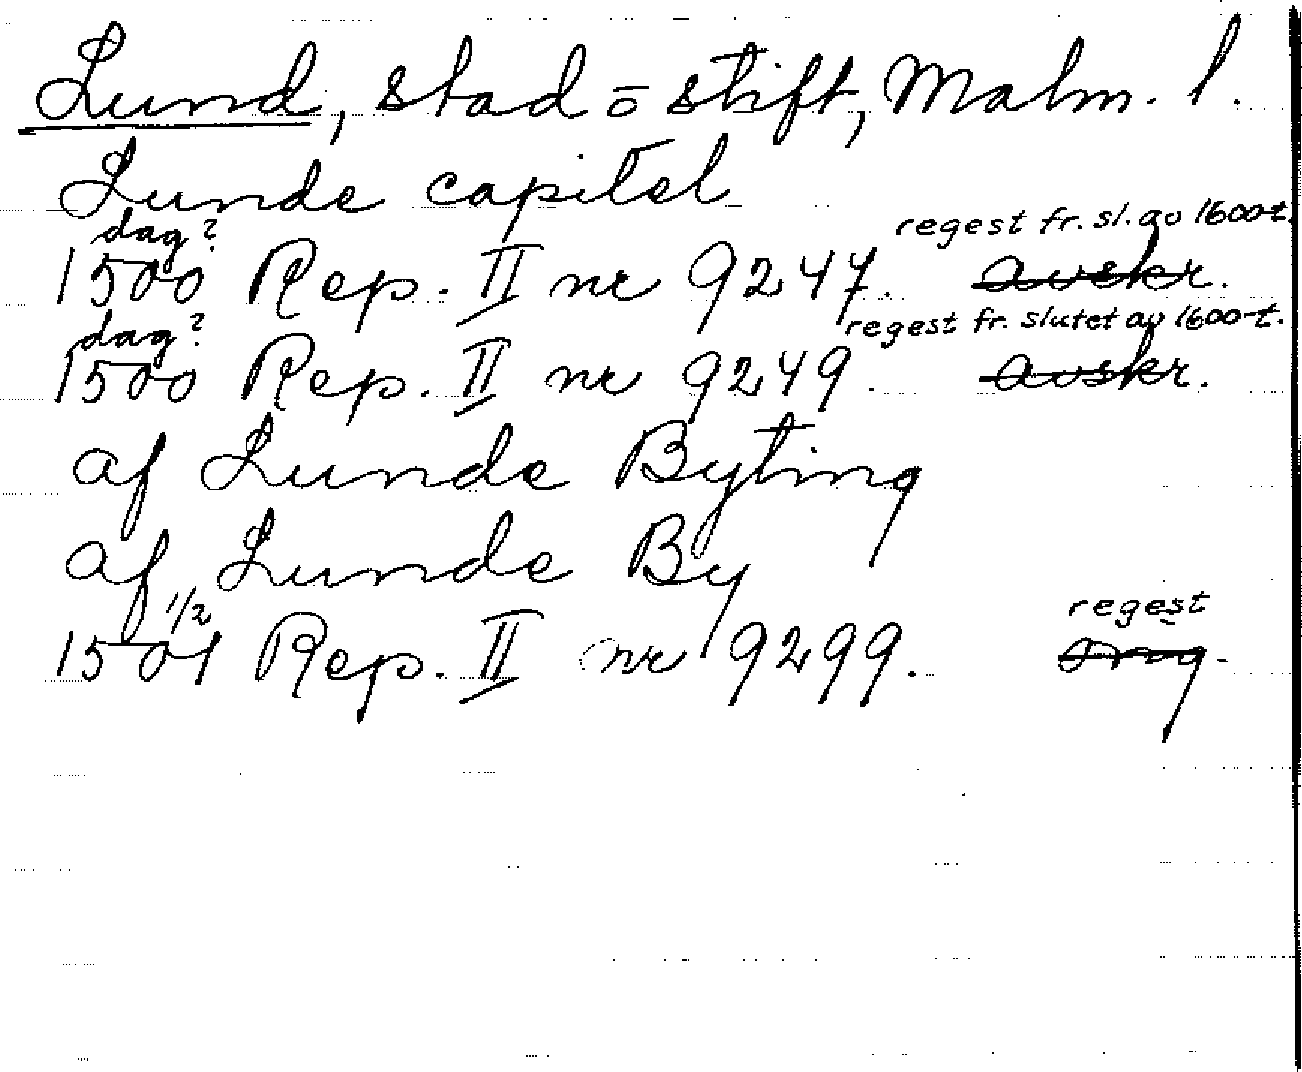 Lund, stad o stift, Malm. l.
Lunde capitel
dag? regest fr. sl. av 1600-t.
1500 Rep. II nr 9247. avskr.
dag? regest fr. slutet av 1600-t.
1500 Rep. II nr 9249. avskr.
af Lunde Byting
af Lunde By
1/2 regest
1501 Rep. II nr 9299.